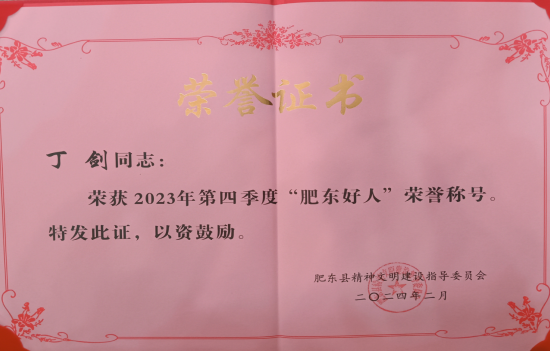 荣誉证书
丁 剑同志：
荣获2023年第四季度“肥东好人”荣誉称号。
特发此证，以资鼓励。
肥东县精神文明建设指导委员会
二〇二四年二月